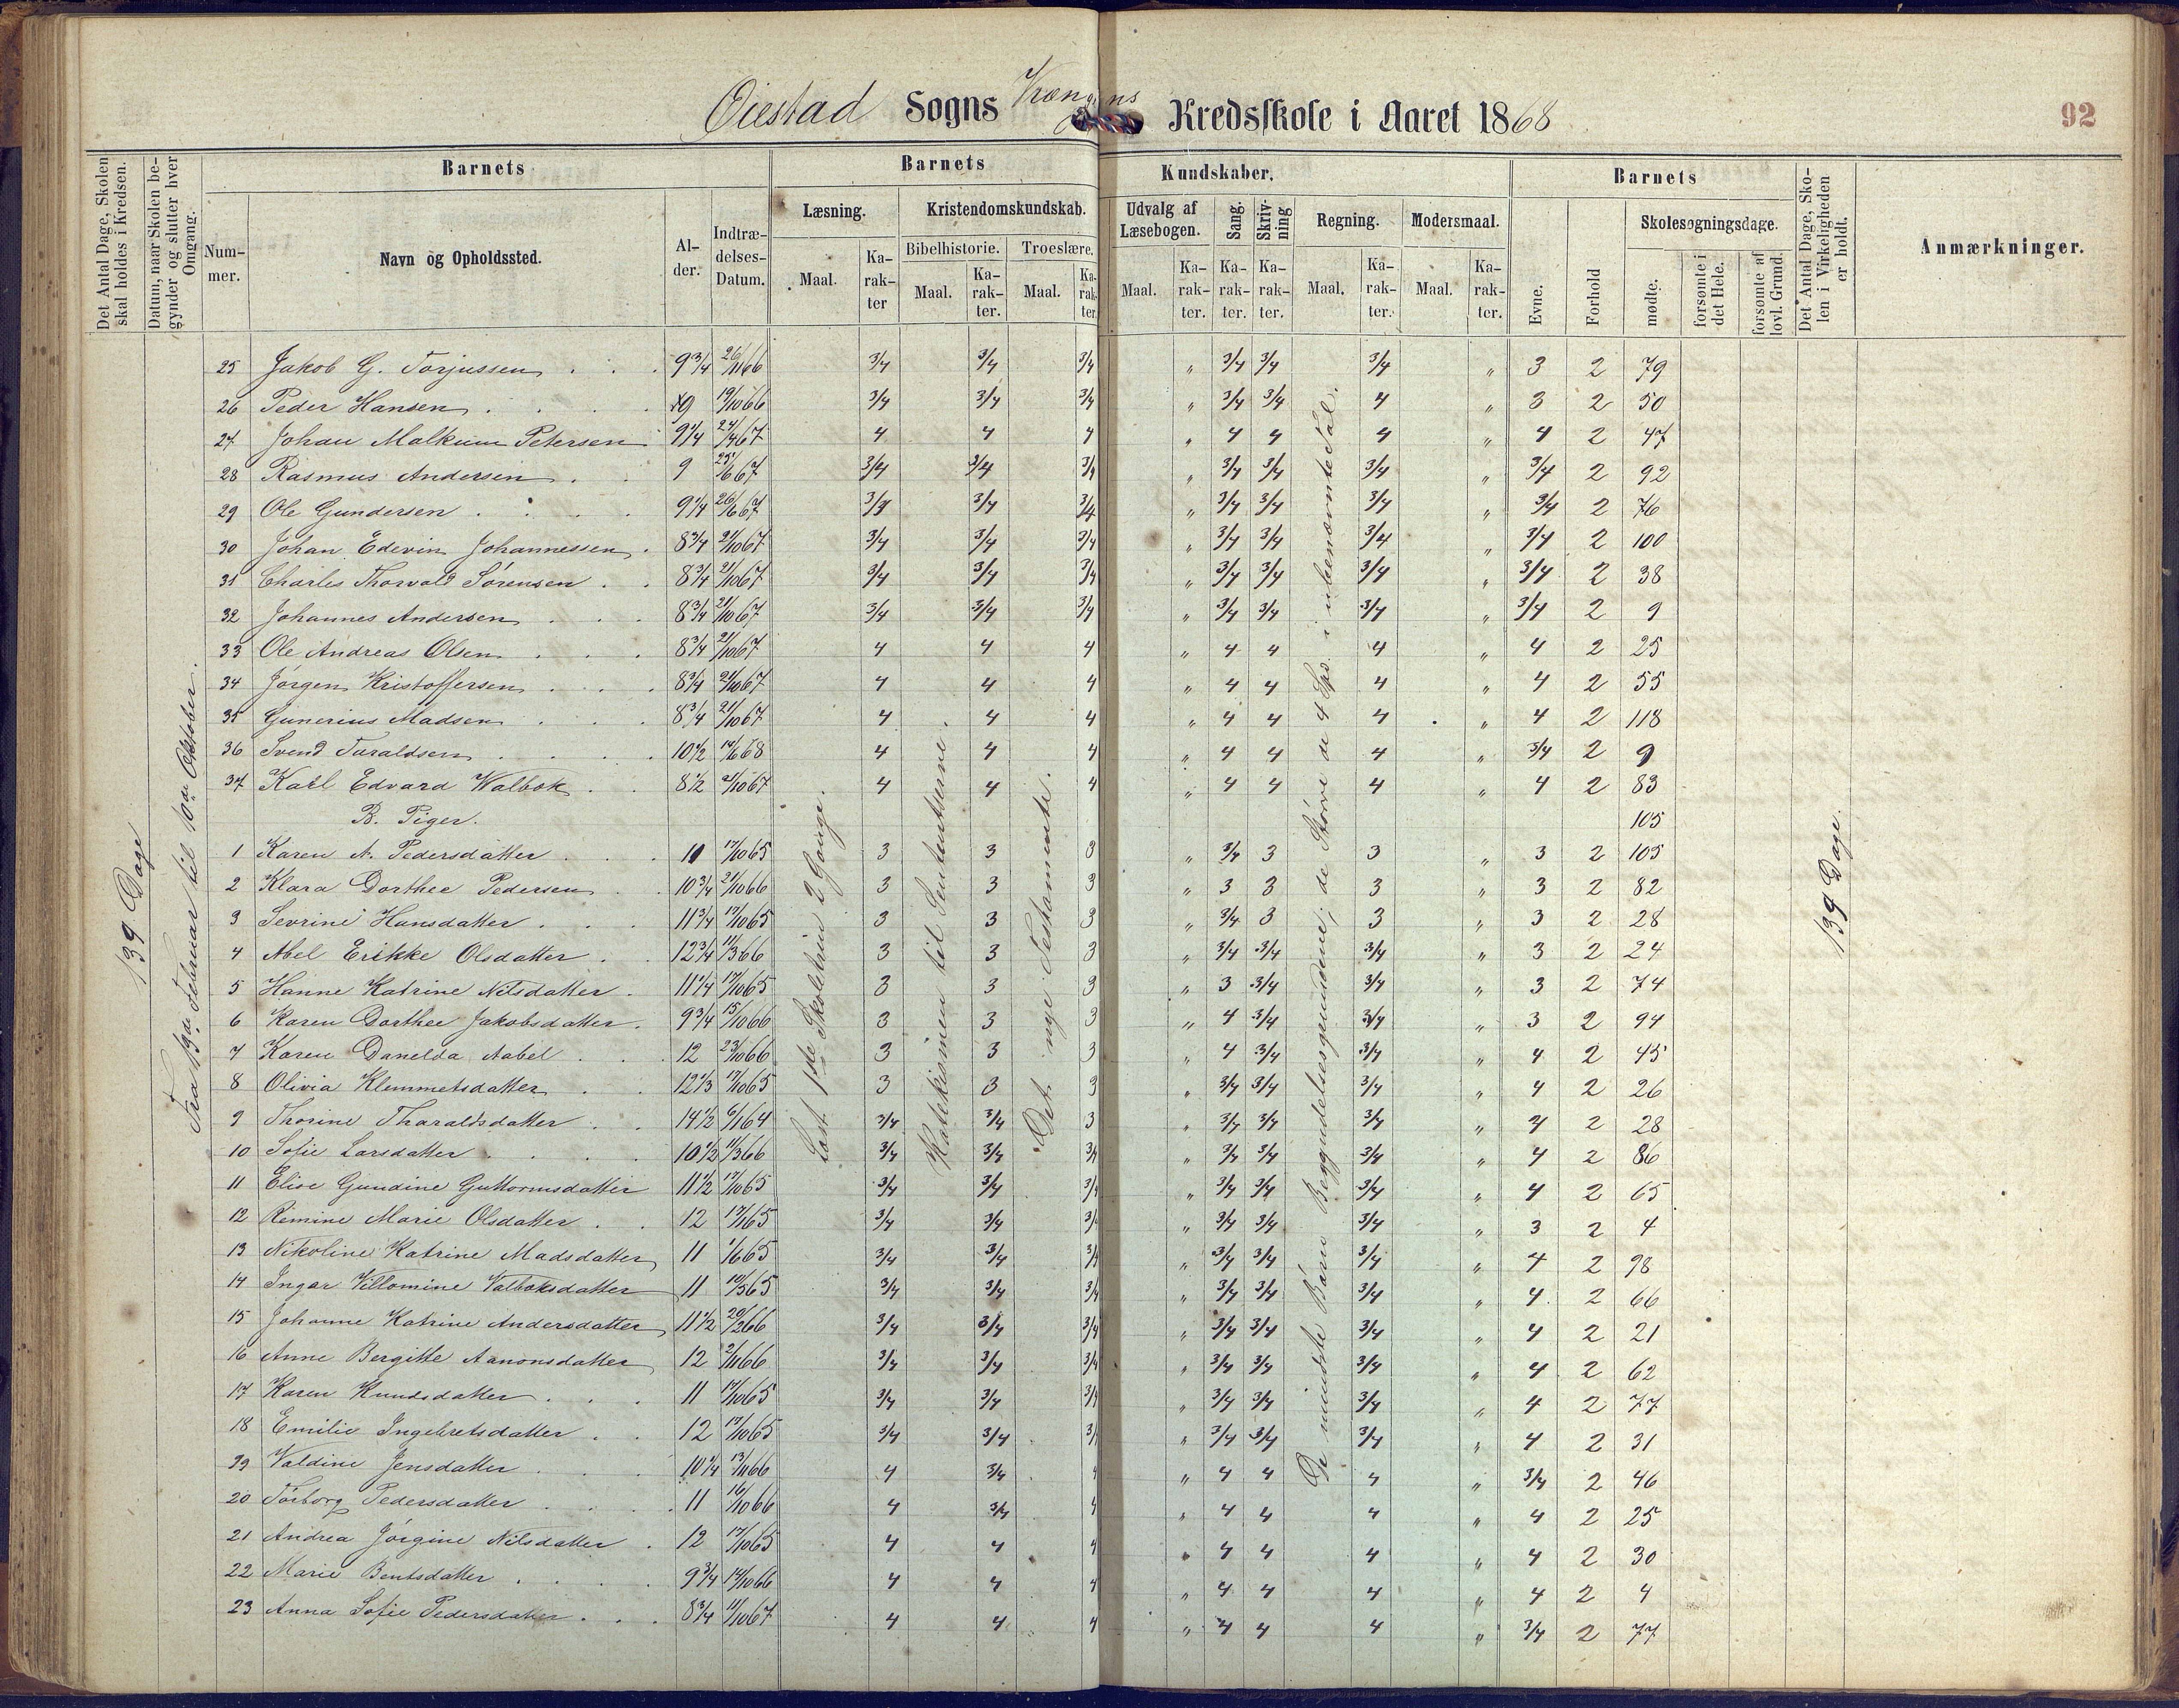 Øiestad Sogns Kredsskole i Aaret 1868
92
Det Antal Dage, Skolen skal holdes i Kredsen.
Datum, naar Skolen begynder og slutter hver Omgang.
Barnets
Barnets
Kundskaber.
Barnets
Det Antal Dage, Skolen i Virkeligheden er holdt.
Anmærkninger.
Nummer.
Navn og Opholdssted.
Alder.
Indtrædelses-Datum.
Læsning.
Kristendomskundskab.
Udvalg af Læsebogen.
Sang.
Skrivning
Regning.
Modersmaal.
Evne.
Forhold
Skolesøgningsdage.
Bibelhistorie.
Troeslære.
Maal.
Karakter
Maal.
Karakter.
Maal.
Karakter.
Maal.
Karakter.
Karakter.
Karakter.
Maal.
Karakter.
Maal.
Karakter.
mødte.
forsømte i det Hele.
forsømte af lovl. Grund.
139 Dage
Fra 13de Februar til 10de Oktober.
Læst 1ste Skoletrin 2 Gange.
Det nye Testamente.
139 Dage.
25 Jakob G. Torjussen 9 3/4 26/11 66 3/4 3/4 3/4 " 3/4 3/4 3/4 " 3 2 79
26 Peder Hansen 9 19/10 66 3/4 3/4 3/4 " 3/4 3/4 4 " 3 2 50
27 Johan Malkum Petersen 9 1/4 24/4 67 4 4 4 " 4 4 4 " 4 2 47
28 Rasmus Andersen 9 25/6 67 3/4 3/4 3/4 " 3/4 3/4 3/4 " 3/4 2 92
29 Ole Gundersen 9 1/4 26/6 67 3/4 3/4 3/4 " 3/4 3/4 3/4 " 3/4 2 76
30 Johan Edevin Johannessen 8 3/4 21/10 67 3/4 3/4 3/4 " 3/4 3/4 3/4 " 3/4 2 100
31 Charles Thorvald Sørensen 8 3/4 21/10 67 3/4 3/4 3/4 " 3/4 3/4 3/4 " 3/4 2 38
32 Johannes Andersen 8 3/4 21/10 67 3/4 3/4 3/4 " 3/4 3/4 3/4 " 3/4 2 9
33 Ole Andreas Olsen 8 3/4 21/10 67 4 4 4 " 4 4 4 " 4 2 25
34 Jørgen Kristoffersen 8 3/4 21/10 67 4 4 4 " 4 4 4 " 4 2 55
35 Gunerius Madsen 8 3/4 21/10 67 4 4 4 " 4 4 4 " 4 2 118
36 Svend Taraldsen 10 1/2 16/6 68 4 4 4 " 4 4 4 " 3/4 2 9
37 Karl Edvard Walbok 8 1/2 21/10 67 4 4 4 " 4 4 4 " 4 2 83
B. Piger. 105
1 Karen A. Pedersdatter 10 17/10 65 3 3 3 " 3/4 3 3 " 3 2 105
2 Klara Dorthee Pedersen 10 3/4 21/10 66 3 3 3 " 3 3 3 " 3 2 82
3 Sevrine Hansdatter 11 3/4 17/10 65 3 3 3 " 3/4 3 3 " 3 2 28
4 Abel Erikke Olsdatter 12 3/4 11/3 66 3 3 3 " 3/4 3/4 3/4 " 3 2 24
5 Hanne Katrine Nilsdatter 11 1/4 17/10 65 3 3 3 " 3 3/4 3/4 " 3 2 74
6 Karen Dorthee Jakobsdatter 9 3/4 15/10 66 3 3 3 " 4 3/4 3/4 " 3 2 94
7 Karen Danelda Aabel 12 23/10 66 3 3 3 " 4 3/4 3/4 " 4 2 45
8 Olivia Klemmetsdatter 12 1/3 17/10 65 3 3 3 " 3/4 3/4 3/4 " 4 2 26
9 Thorine Tharaldsdatter 14 1/2 6/1 64 3/4 3/4 3 " 3/4 3/4 3/4 " 4 2 28
10 Sofie Larsdatter 10 1/2 11/3 66 3/4 3/4 3/4 " 3/4 3/4 3/4 " 4 2 86
11 Elise Gundine Guttormsdatter 11 1/2 17/10 65 3/4 3/4 3/4 " 3/4 3/4 3/4 " 4 2 65
12 Rimine Marie Olsdatter 12 17/1 65 3/4 3/4 3/4 " 3/4 3/4 3/4 " 3 2 4
13 Nikoline Katrine Madsdatter 11 1/6 65 3/4 3/4 3/4 " 3/4 3/4 3/4 " 4 2 98
14 Ingar Villomine Valboksdatter 11 10/5 65 3/4 3/4 3/4 " 3/4 3/4 3/4 " 4 2 66
15 Johanne Katrine Andersdatter 11 1/2 20/2 66 3/4 3/4 3/4 " 3/4 3/4 3/4 " 4 2 21
16 Anne Bergitte Aanonsdatter 12 2/11 66 3/4 3/4 3/4 " 3/4 3/4 3/4 " 4 2 62
17 Karen Knudsdatter 11 17/10 65 3/4 3/4 3/4 " 3/4 3/4 3/4 " 4 2 77
18 Emilie Ingebretsdatter 12 17/10 65 3/4 3/4 3/4 " 3/4 3/4 3/4 " 4 2 31
19 Valdine Jensdatter 10 1/4 13/11 66 4 3/4 4 " 4 4 4 " 3/4 2 46
20 Torborg Pedersdatter 11 16/10 66 4 3/4 4 " 4 4 4 " 4 2 25
21 Andrea Jørgine Nilsdatter 12 17/10 65 4 4 4 " 4 4 4 " 4 2 30
22 Marie Bentsdatter 9 3/4 14/10 66 4 4 4 " 4 4 4 " 4 2 4
23 Anna Sofie Pedersdatter 8 3/4 11/10 67 4 4 4 " 4 4 4 " 3/4 2 77